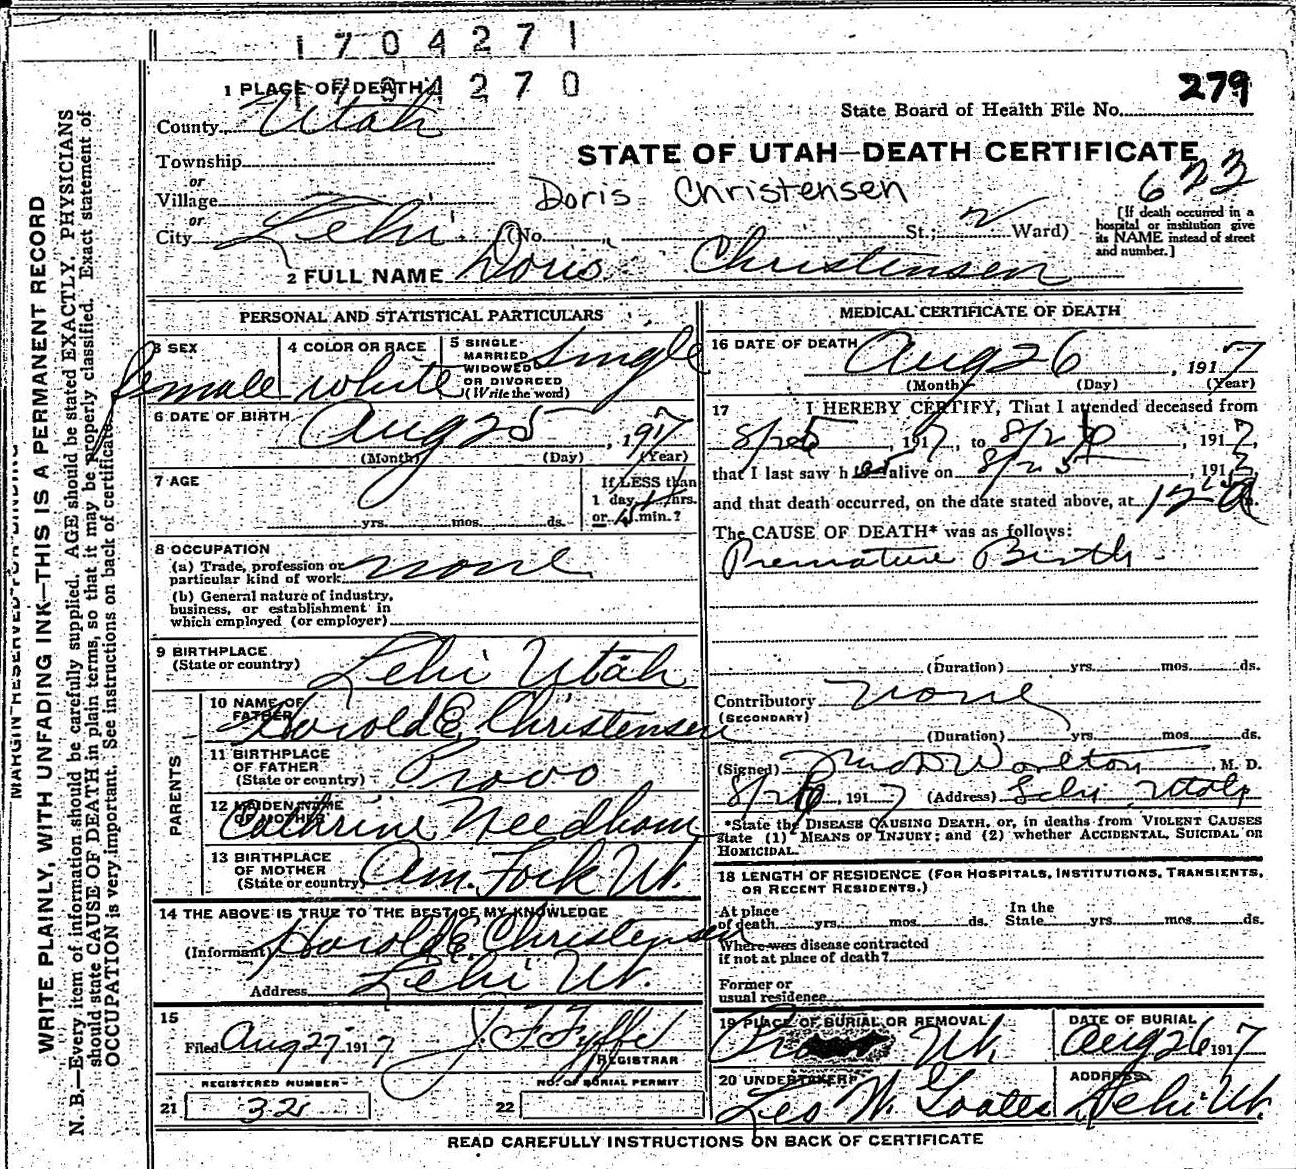 1704271
1704270
279
1 PLACE OF DEATH
State Board of Health File No.
County Utah
STATE OF UTAH—DEATH CERTIFICATE
Township
or
Doris Christensen
623
Village
or
City Lehi (No. St.; 2 Ward)
[If death occurred in a
hospital or institution give
its NAME instead of street
and number.]
2 FULL NAME Doris Christensen
PERSONAL AND STATISTICAL PARTICULARS
3 SEX female
4 COLOR OR RACE white
5 SINGLE
MARRIED
WIDOWED
OR DIVORCED
(Write the word)
Single
6 DATE OF BIRTH Aug 25, 1917
(Month) (Day) (Year)
7 AGE
yrs. mos. ds.
If LESS than
1 day, hrs.
or 15 min.?
8 OCCUPATION
(a) Trade, profession or
particular kind of work none
(b) General nature of industry,
business, or establishment in
which employed (or employer)
9 BIRTHPLACE
(State or country) Lehi Utah
PARENTS
10 NAME OF
FATHER Harold E. Christensen
11 BIRTHPLACE
OF FATHER
(State or country) Provo
12 MAIDEN NAME
OF MOTHER Cathrine Needham
13 BIRTHPLACE
OF MOTHER
(State or country) Am. Fork Ut.
14 THE ABOVE IS TRUE TO THE BEST OF MY KNOWLEDGE
(Informant) Harold E. Christensen
Address Lehi Ut.
15
Filed Aug 27, 1917 J. F. Fyffe
REGISTRAR
REGISTERED NUMBER
NO. OF BURIAL PERMIT
21 32
22
MEDICAL CERTIFICATE OF DEATH
16 DATE OF DEATH Aug 26, 1917
(Month) (Day) (Year)
17 I HEREBY CERTIFY, That I attended deceased from
8/25, 1917, to 8/26, 1917,
that I last saw her alive on 8/25, 1917,
and that death occurred, on the date stated above, at
The CAUSE OF DEATH* was as follows:
Premature Birth
(Duration) yrs. mos. ds.
Contributory none
(SECONDARY)
(Duration) yrs. mos. ds.
(Signed) Worlton, M. D.
8/26, 1917 (Address) Lehi, Utah
*State the DISEASE CAUSING DEATH, or, in deaths from VIOLENT CAUSES
state (1) MEANS OF INJURY; and (2) whether ACCIDENTAL, SUICIDAL OR
HOMICIDAL.
18 LENGTH OF RESIDENCE (FOR HOSPITALS, INSTITUTIONS, TRANSIENTS,
OR RECENT RESIDENTS.)
At place
of death yrs. mos. ds.
In the
State yrs. mos. ds.
Where was disease contracted
if not at place of death?
Former or
usual residence
19 PLACE OF BURIAL OR REMOVAL
Ut.
DATE OF BURIAL
Aug 26 1917
20 UNDERTAKER
Leo W. Goates
ADDRESS
Lehi Ut.
READ CAREFULLY INSTRUCTIONS ON BACK OF CERTIFICATE
MARGIN RESERVED FOR BINDING
WRITE PLAINLY, WITH UNFADING INK—THIS IS A PERMANENT RECORD
N. B.—Every item of information should be carefully supplied. AGE should be stated EXACTLY. PHYSICIANS
should state CAUSE OF DEATH in plain terms, so that it may be properly classified. Exact statement of
OCCUPATION is very important. See instructions on back of certificate.